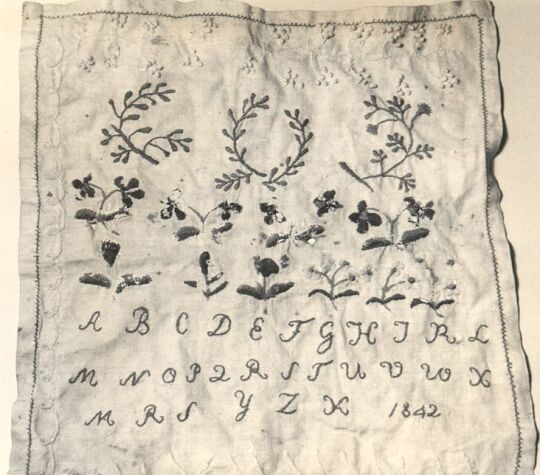 A B C D E F G H I K L
M N O P Q R S T U V W X
M R S Y Z X 1842